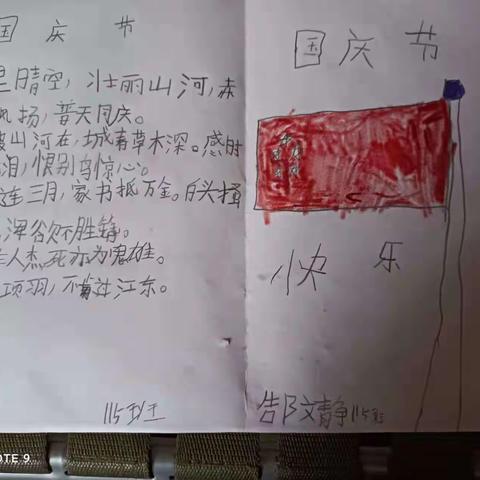 国庆节
里晴空，壮丽山河，赤
扬，普天同庆。
破山河在，城春草木深。感时
泪，恨别鸟惊心。
连三月，家书抵万金。白头搔
浑欲不胜簪。
人杰死亦为鬼雄。
项羽，不肯过江东。
115班
国庆节
快乐
郜文静115班
OTE 9